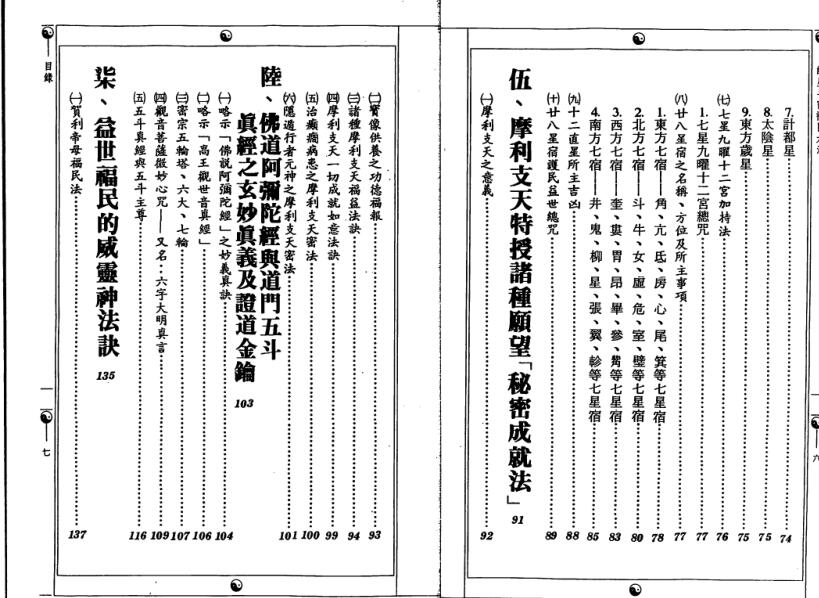 7.計都星 74
8.太陰星 75
9.東方歲星 75
㈦七星九曜十二宮加持法 76
1.七星九曜十二宮總咒 77
㈧廿八星宿之名稱、方位及所主事項 77
1.東方七宿——角、亢、氐、房、心、尾、箕等七星宿 78
2.北方七宿——斗、牛、女、虛、危、室、壁等七星宿 80
3.西方七宿——奎、婁、胃、昂、畢、參、觜等七星宿 83
4.南方七宿——井、鬼、柳、星、張、翼、軫等七星宿 85
㈨十二直星所主吉凶 88
㈩廿八星宿護民益世總咒 89
伍、摩利支天特授諸種願望「秘密成就法」 91
㈠摩利支天之意義 92
六
㈡寶像供養之功德福報 93
㈢諸種摩利支天福益法訣 94
㈣摩利支天一切成就如意法訣 99
㈤治癲癇病患之摩利支天密法 100
㈥隱遁行者元神之摩利支天密法 101
陸、佛道阿彌陀經與道門五斗
真經之玄妙真義及證道金鑰 103
㈠略示「佛說阿彌陀經」之妙義真訣 104
㈡略示「高王觀世音真經」 106
㈢密宗五輪塔、六大、七輪 107
㈣觀音菩薩微妙心咒——又名：六字大明真言 109
㈤五斗真經與五斗主尊 116
柒、益世福民的威靈神法訣 135
㈠賀利帝母福民法 137
目錄
七